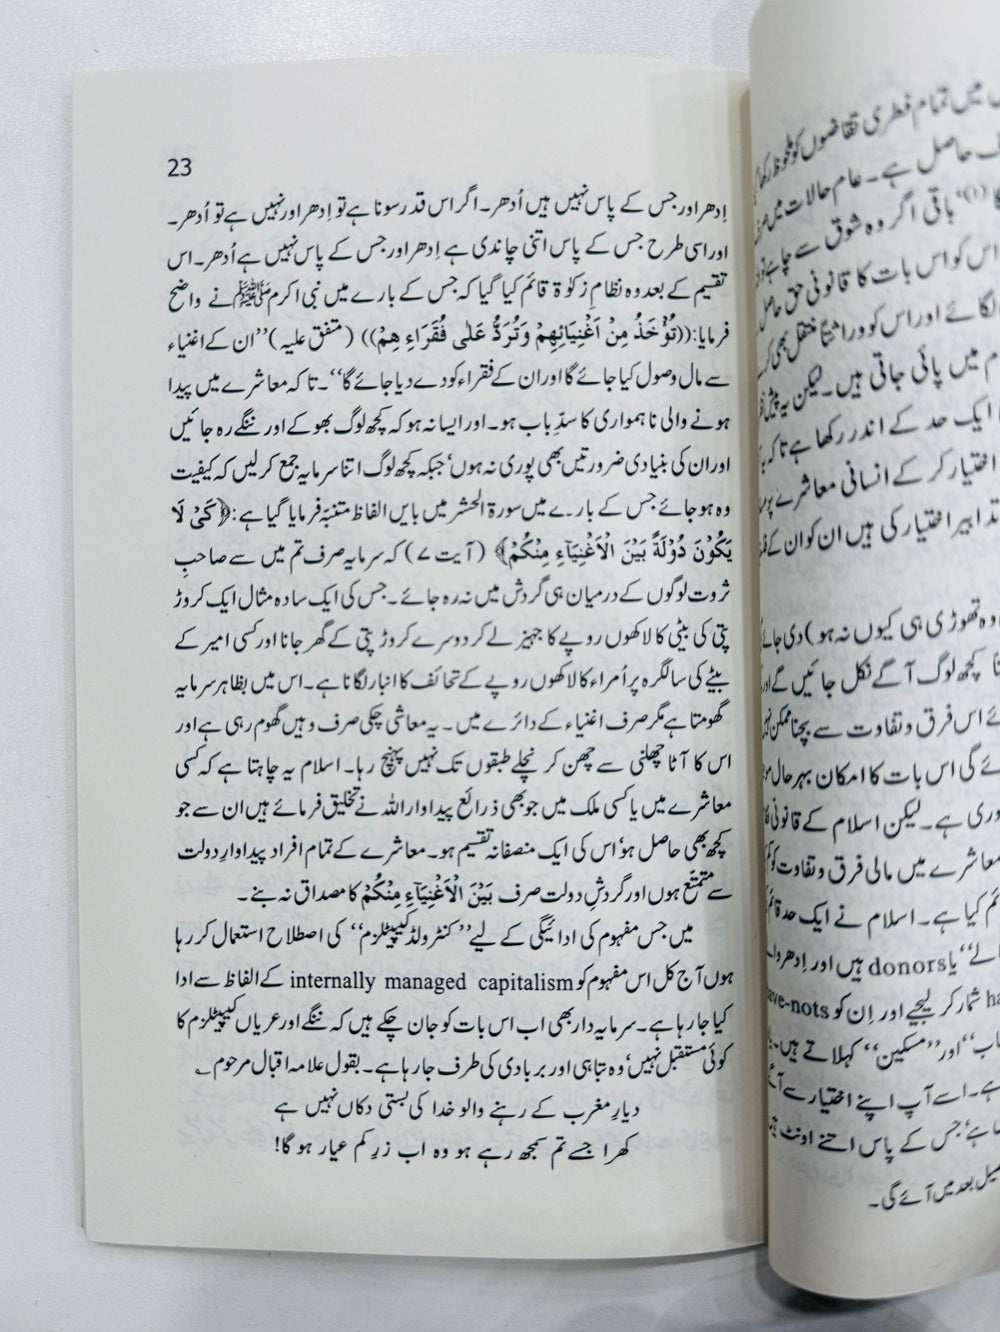 23
اِدھر اور جس کے پاس نہیں ہیں اُدھر۔ اگر اس قدر سونا ہے تو اِدھر اور نہیں ہے تو اُدھر۔
اور اسی طرح جس کے پاس اتنی چاندی ہے اِدھر اور جس کے پاس نہیں ہے اُدھر۔ اس
تقسیم کے بعد وہ نظامِ زکوٰۃ قائم کیا گیا کہ جس کے بارے میں نبی اکرم ﷺ نے واضح
فرمایا: ((تُؤْخَذُ مِنْ اَغْنِیَائِهِمْ وَتُرَدُّ عَلٰی فُقَرَاءِ هِمْ)) (متفق علیہ) ’’ان کے اغنیاء
سے مال وصول کیا جائے گا اور ان کے فقراء کو دے دیا جائے گا‘‘۔ تاکہ معاشرے میں پیدا
ہونے والی ناہمواری کا سدِّ باب ہو۔ اور ایسا نہ ہو کہ کچھ لوگ بھوکے اور ننگے رہ جائیں
اور ان کی بنیادی ضرورتیں بھی پوری نہ ہوں‘ جبکہ کچھ لوگ اتنا سرمایہ جمع کر لیں کہ کیفیت
وہ ہو جائے جس کے بارے میں سورۃ الحشر میں بایں الفاظ متنبّہ فرمایا گیا ہے: ﴿کَیْ لَا
یَکُوْنَ دُوْلَةً بَیْنَ الْاَغْنِیَآءِ مِنْکُمْ﴾ (آیت ۷) کہ سرمایہ صرف تم میں سے صاحبِ
ثروت لوگوں کے درمیان ہی گردش میں نہ رہ جائے۔ جس کی ایک سادہ مثال ایک کروڑ
پتی کی بیٹی کا لاکھوں روپے کا جہیز لے کر دوسرے کروڑ پتی کے گھر جانا اور کسی امیر کے
بیٹے کی سالگرہ پر اُمراء کا لاکھوں روپے کے تحائف کا انبار لگانا ہے۔ اس میں بظاہر سرمایہ
گھومتا ہے مگر صرف اغنیاء کے دائرے میں۔ یہ معاشی چکی صرف وہیں گھوم رہی ہے اور
اس کا آٹا چھلنی سے چھن کر نچلے طبقوں تک نہیں پہنچ رہا۔ اسلام یہ چاہتا ہے کہ کسی
معاشرے میں یا کسی ملک میں جو بھی ذرائع پیداوار اللہ نے تخلیق فرمائے ہیں ان سے جو
کچھ بھی حاصل ہو‘ اس کی ایک منصفانہ تقسیم ہو۔ معاشرے کے تمام افراد پیداوارِ دولت
سے متمتع ہوں اور گردشِ دولت صرف بَیْنَ الْاَغْنِیَآءِ مِنْکُمْ کا مصداق نہ بنے۔
میں جس مفہوم کی ادائیگی کے لیے ’’کنٹرولڈ کیپٹلزم‘‘ کی اصطلاح استعمال کر رہا
ہوں آج کل اس مفہوم کو internally managed capitalism کے الفاظ سے ادا
کیا جا رہا ہے۔ سرمایہ دار بھی اب اس بات کو جان چکے ہیں کہ ننگے اور عریاں کیپٹلزم کا
کوئی مستقبل نہیں‘ وہ تباہی اور بربادی کی طرف جا رہا ہے۔ بقول علامہ اقبال مرحوم ؎
دیارِ مغرب کے رہنے والو خدا کی بستی دکاں نہیں ہے
کھرا جسے تم سمجھ رہے ہو وہ اب زرِ کم عیار ہو گا!
میں تمام فطری تقاضوں کو ملحوظ رکھا
حاصل ہے۔ عام حالات میں
(۱) باقی اگر وہ شوق سے چاہے
اس کو اس بات کا قانونی حق حاصل
لگائے اور اس کو وراثتاً منتقل بھی
میں پائی جاتی ہیں۔ لیکن یہ
ایک حد کے اندر رکھا ہے تاکہ
اختیار کر کے انسانی معاشرے
تدابیر اختیار کی ہیں ان کو ان کے
وہ تھوڑی ہی کیوں نہ ہو) دی جائے
کچھ لوگ آگے نکل جائیں گے اور
اس فرق و تفاوت سے بچنا ممکن نہیں
گی اس بات کا امکان بہرحال
ہے۔ لیکن اسلام کے قانونی
معاشرے میں مالی فرق و تفاوت کو
کیا ہے۔ اسلام نے ایک حد قائم
یا donors ہیں اور اِدھر والے
شمار کر لیجیے اور اِن کو have-nots
اور ’’مسکین‘‘ کہلاتے ہیں۔
ہے۔ اسے آپ اپنے اختیار سے
ہے‘ جس کے پاس اتنے اونٹ ہیں
بعد میں آئے گی۔